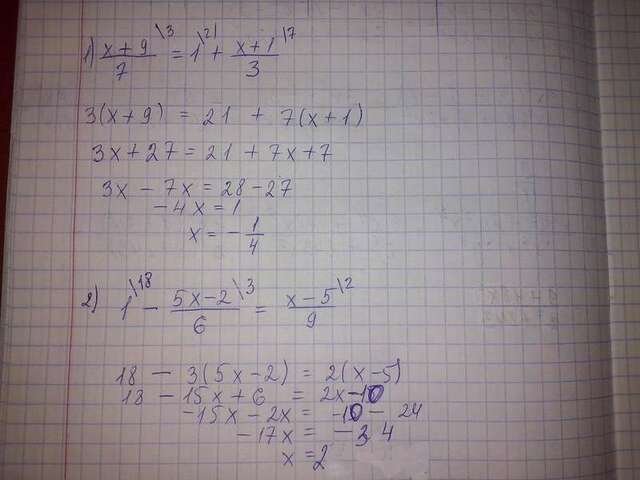 1) x+9\3 / 7 = 1\21 + x+1\7 / 3
3(x+9) = 21 + 7(x+1)
3x+27 = 21 + 7x+7
3x - 7x = 28-27
-4x = 1
x = - 1/4
2) 1\18 - 5x-2\3 / 6 = x-5\2 / 9
18 - 3(5x-2) = 2(x-5)
18 - 15x + 6 = 2x-10
-15x - 2x = -10 - 24
-17x = -34
x = 2